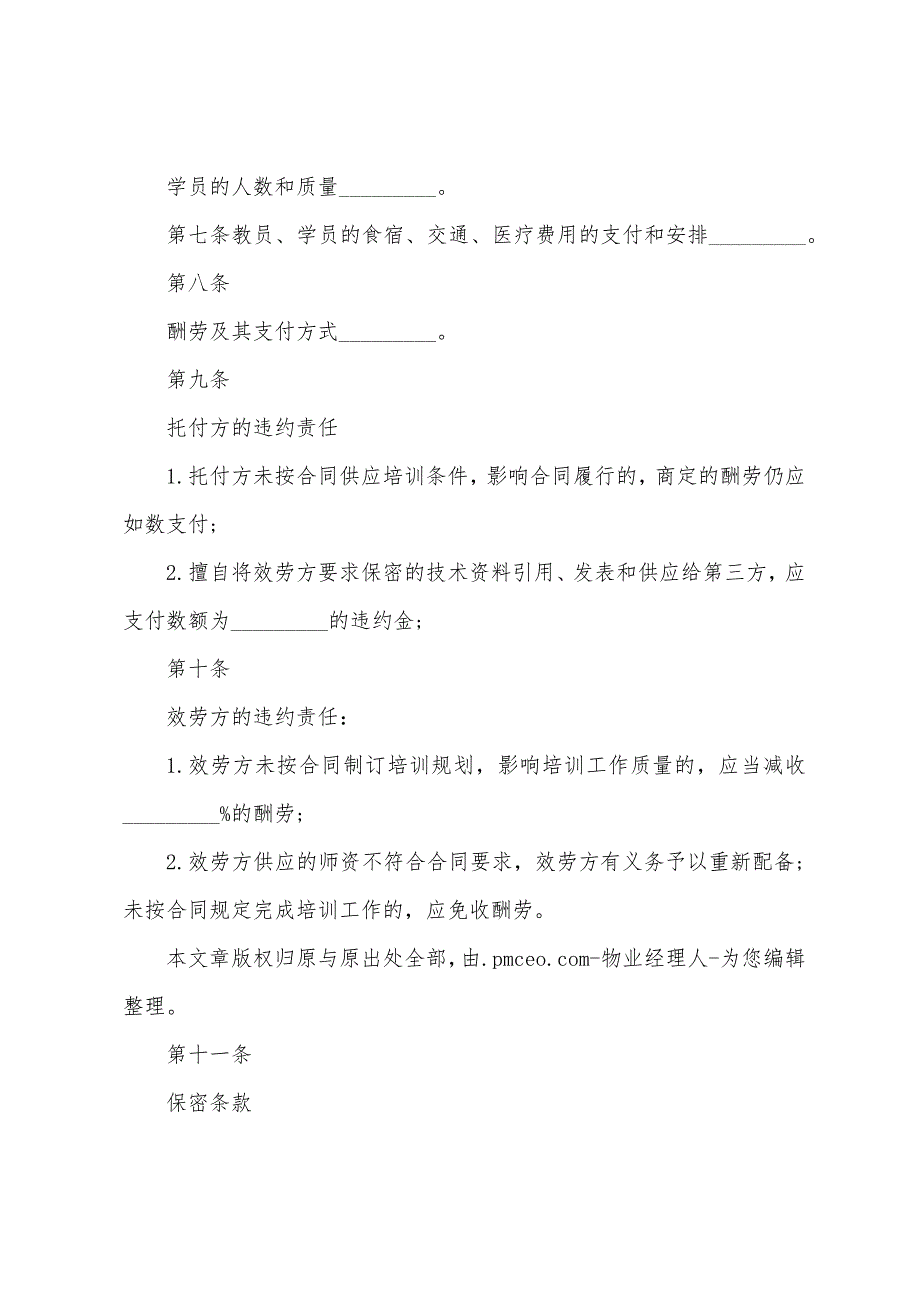 学员的人数和质量_________。
第七条教员、学员的食宿、交通、医疗费用的支付和安排_________。
第八条
酬劳及其支付方式_________。
第九条
托付方的违约责任
1.托付方未按合同供应培训条件，影响合同履行的，商定的酬劳仍应
如数支付;
2.擅自将效劳方要求保密的技术资料引用、发表和供应给第三方，应
支付数额为_________的违约金;
第十条
效劳方的违约责任：
1.效劳方未按合同制订培训规划，影响培训工作质量的，应当减收
_________%的酬劳;
2.效劳方供应的师资不符合合同要求，效劳方有义务予以重新配备;
未按合同规定完成培训工作的，应免收酬劳。
本文章版权归原与原出处全部，由.pmceo.com-物业经理人-为您编辑
整理。
第十一条
保密条款